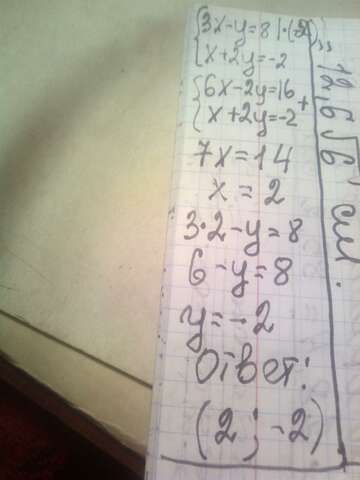 3x-y=8 |·(2)
x+2y=-2
6x-2y=16 +
x+2y=-2
7x=14
x=2
3·2-y=8
6-y=8
y=-2
Ответ:
(2;-2)